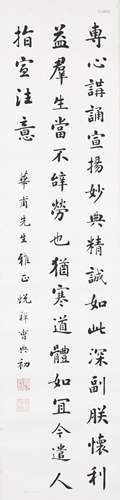 專心講誦宣揚妙典精誠如此深副朕懷利
益羣生當不辭勞也猶寒道體如宜今遣人
指宣注意
華甫先生雅正 悅祥曾典初